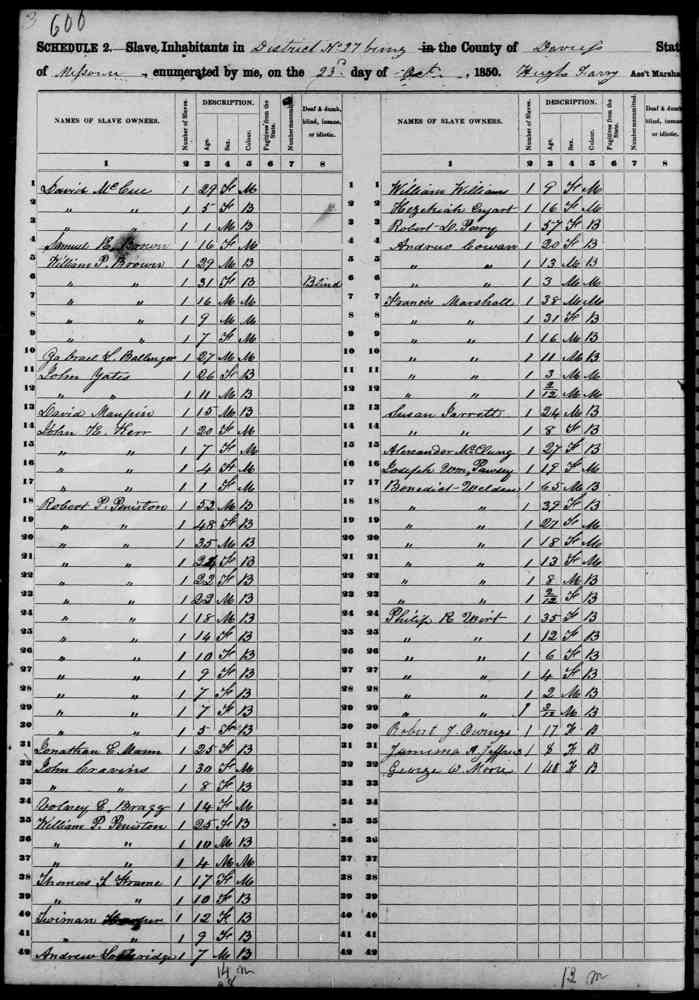 3 600
SCHEDULE 2.—Slave Inhabitants in District No 27 being in the County of Daviess State
of Missouri, enumerated by me, on the 23d day of Oct., 1850. Hugh Ass't Marshal
NAMES OF SLAVE OWNERS. Number of Slaves. DESCRIPTION. Age. Sex. Colour. Fugitives from the State. Number manumitted. Deaf & dumb, blind, insane, or idiotic.
1 2 3 4 5 6 7 8
1 David McCue 1 29 F M
2 " " 1 5 F B
3 " " 1 1 M B
4 Samuel E. Brown 1 16 F M
5 William P. Brown 1 29 M B
6 " " 1 31 F B Blind
7 " " 1 16 M M
8 " " 1 9 M M
9 " " 1 7 F M
10 Gabrael S. Ballinger 1 27 M M
11 John Yates 1 26 F B
12 " " 1 11 M B
13 David Maupin 1 15 M B
14 John H. Kerr 1 20 F M
15 " " 1 7 F M
16 " " 1 4 F M
17 " " 1 1 F M
18 Robert P. Peniston 1 52 M B
19 " " 1 48 F B
20 " " 1 35 M B
21 " " 1 F B
22 " " 1 22 F B
23 " " 1 22 M B
24 " " 1 18 M B
25 " " 1 14 F B
26 " " 1 10 F B
27 " " 1 9 F B
28 " " 1 7 F B
29 " " 1 7 F B
30 " " 1 5 F B
31 Jonathan E. Mann 1 25 F B
32 John Cravins 1 30 F M
33 " " 1 8 F B
34 Volney E. Bragg 1 14 F M
35 William P. Peniston 1 25 F B
36 " " 1 10 M B
37 " " 1 4 M M
38 Thomas T. Frame 1 17 F M
39 " " 1 10 F B
40 Twiman 1 12 F B
41 " " 1 9 F B
42 Andrew 1 7 M B
14 m
28
NAMES OF SLAVE OWNERS. Number of Slaves. DESCRIPTION. Age. Sex. Colour. Fugitives from the State. Number manumitted. Deaf & dumb, blind, insane, or idiotic.
1 2 3 4 5 6 7 8
1 William Williams 1 9 F M
2 Hezekiah 1 16 F M
3 Robert D. Peery 1 57 F B
4 Andrew Cowan 1 20 F B
5 " " 1 13 M B
6 " " 1 3 M M
7 Francis Marshall 1 38 M M
8 " " 1 31 F B
9 " " 1 16 M B
10 " " 1 11 M B
11 " " 1 3 M M
12 " " 1 2/12 M M
13 Susan Jarrott 1 24 M B
14 " " 1 8 F B
15 Alexander McClung 1 27 F B
16 Joseph Wm. 1 19 F M
17 Benedict Welden 1 65 M B
18 " " 1 39 F B
19 " " 1 27 F M
20 " " 1 18 F M
21 " " 1 13 F M
22 " " 1 8 M B
23 " " 1 2/12 F B
24 Philip R. Wirt 1 35 F B
25 " " 1 12 F B
26 " " 1 6 F B
27 " " 1 4 F B
28 " " 1 2 M B
29 " " 1 2/12 M B
30 Robert J. Owings 1 17 F B
31 Jamima A. Jeffries 1 8 F B
32 George W. Moore 1 48 F B
33
34
35
36
37
38
39
40
41
42
12 m